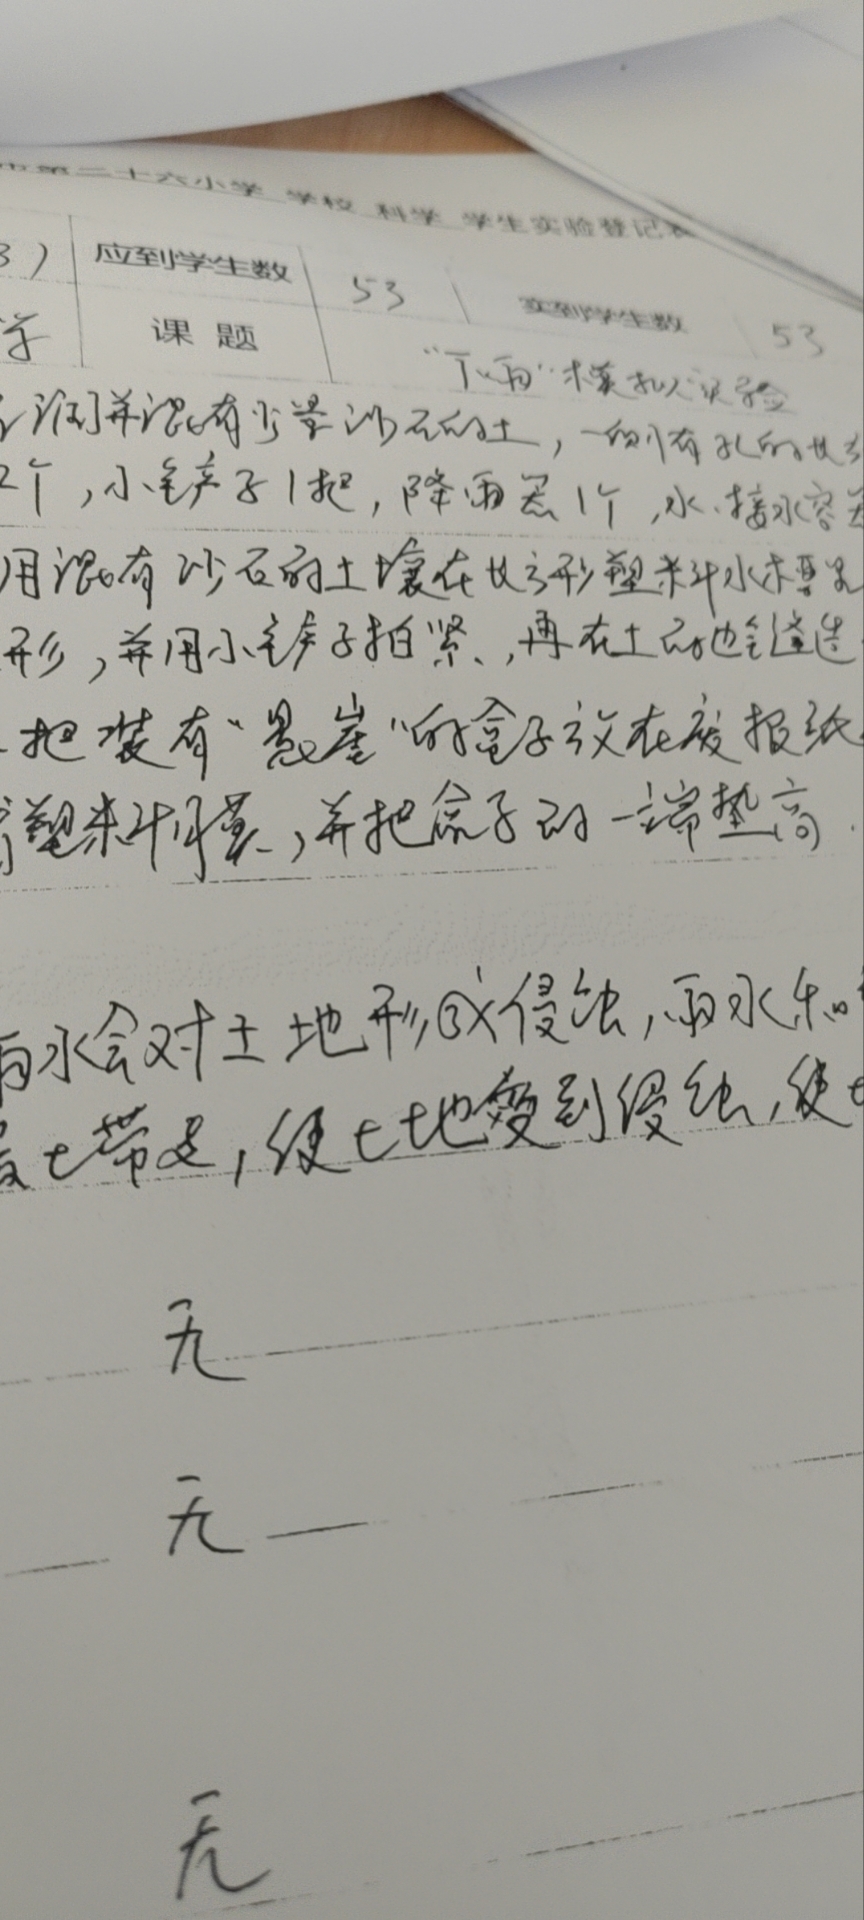 第二十六小学 学校 科学 学生实验登记表
3） 应到学生数 53 实到学生数 53
学 课题 “下雨”模拟实验
润并混有少量沙石的土，一侧有孔的长方
2个，小铲子1把，降雨器1个，水、接水容器
用混有沙石的土壤在长方形塑料水槽里
形，并用小铲子拍紧、，再在土的地缝造
把装有“悬崖”的盒子放在废报纸
塑料膜，并把盒子的一端垫高
雨水会对土地形成侵蚀，雨水和
土带走，使土地变到侵蚀，使土
无
无
无